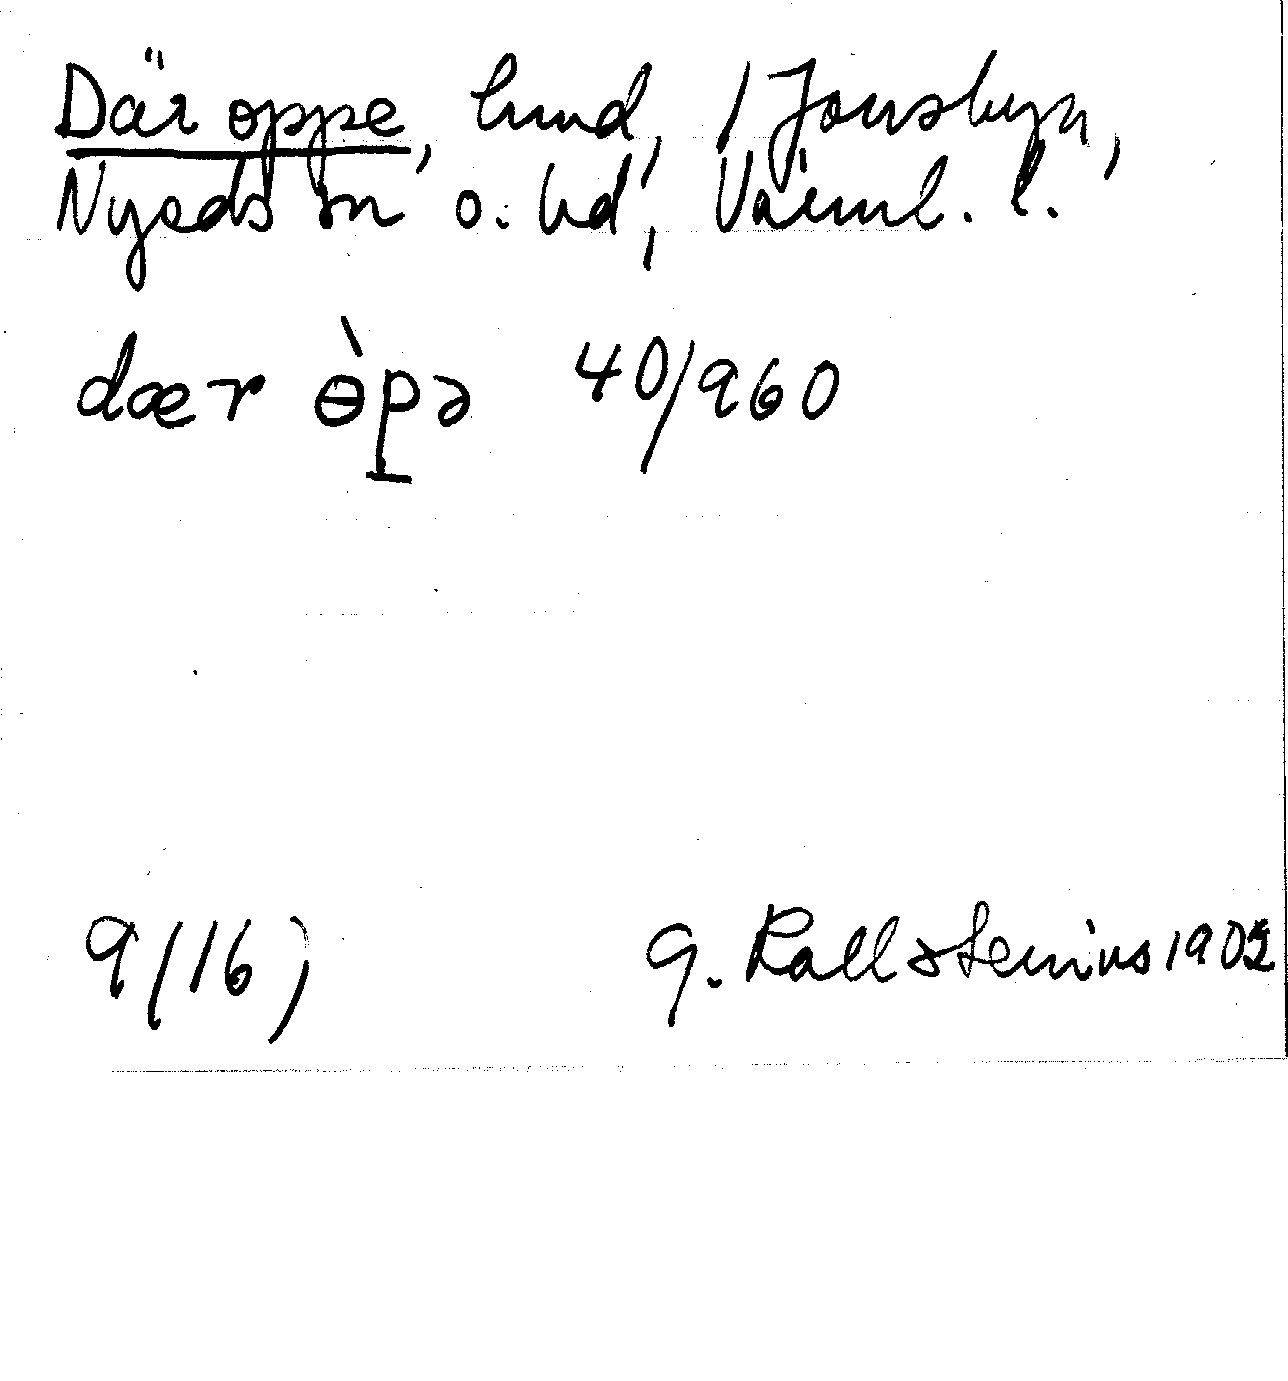 Där oppe, lund, / Jonsbyn,
Nyeds sn o. hd, Värml. l.
dær ɵ̀pə 40/960
9/16)
G. Kallstenius 1902